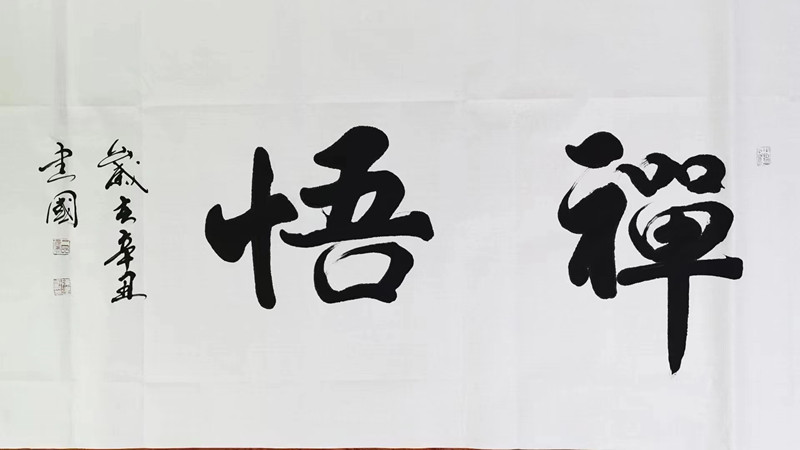 禪悟
歲在辛丑
建國